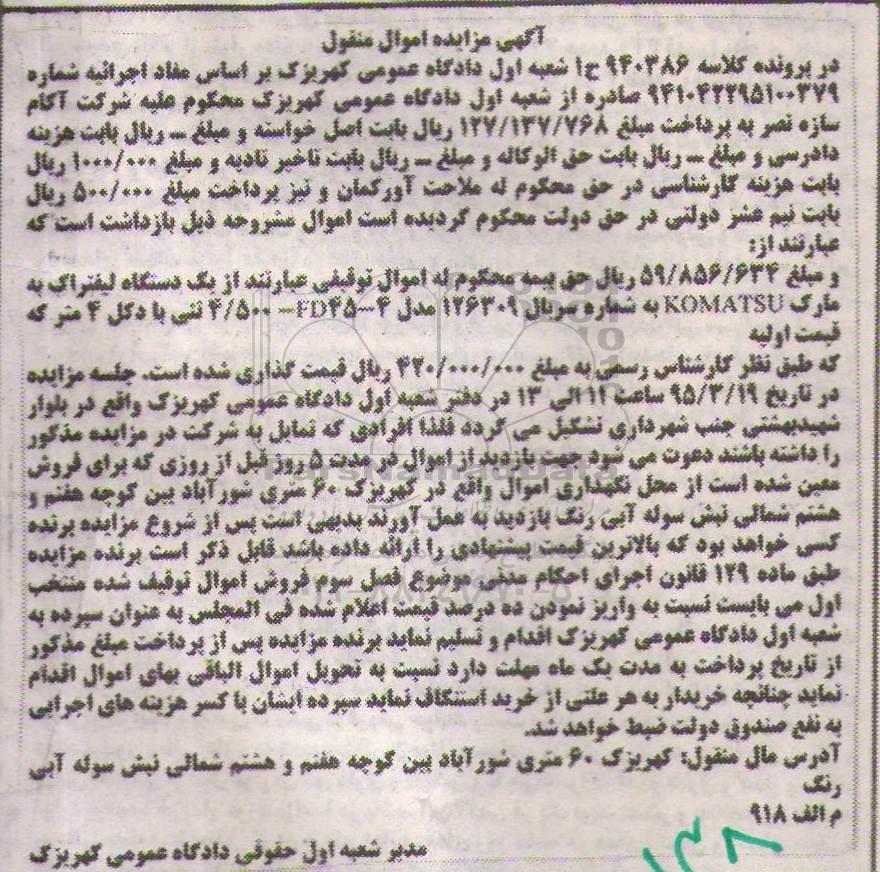 آگهی مزایده اموال منقول
در پرونده کلاسه ۹۴۰۳۸۶ ح۱ شعبه اول دادگاه عمومی کهریزک بر اساس مفاد اجرائیه شماره
۹۴۱۰۴۲۲۹۵۱۰۰۳۷۹ صادره از شعبه اول دادگاه عمومی کهریزک محکوم علیه شرکت آکام
سازه نصر به پرداخت مبلغ ۱۲۷/۱۳۷/۷۶۸ ریال بابت اصل خواسته و مبلغ ــ ریال بابت هزینه
دادرسی و مبلغ ــ ریال بابت حق الوکاله و مبلغ ــ ریال بابت تاخیر تادیه و مبلغ ۱۰۰۰/۰۰۰ ریال
بابت هزینه کارشناسی در حق محکوم له ملاحت آورکمان و نیز پرداخت مبلغ ۵۰۰/۰۰۰ ریال
بابت نیم عشر دولتی در حق دولت محکوم گردیده است اموال مشروحه ذیل بازداشت است که
عبارتند از:
و مبلغ ۵۹/۸۵۶/۶۳۴ ریال حق بیمه محکوم له اموال توقیفی عبارتند از یک دستگاه لیفتراک به
مارک KOMATSU به شماره سریال ۱۲۶۳۰۹ مدل FD۴۵-۴- ۴/۵۰۰ تنی با دکل ۴ متر که
قیمت اولیه
که طبق نظر کارشناس رسمی به مبلغ ۴۴۰/۰۰۰/۰۰۰ ریال قیمت گذاری شده است. جلسه مزایده
در تاریخ ۹۵/۳/۱۹ ساعت ۱۱ الی ۱۳ در دفتر شعبه اول دادگاه عمومی کهریزک واقع در بلوار
شهیدبهشتی جنب شهرداری تشکیل می گردد فلذا افرادی که تمایل به شرکت در مزایده مذکور
را داشته باشند دعوت می شود جهت بازدید از اموال در مدت ۵ روز قبل از روزی که برای فروش
معین شده است از محل نگهداری اموال واقع در کهریزک ۶۰ متری شورآباد بین کوچه هفتم و
هشتم شمالی نبش سوله آبی رنگ بازدید به عمل آورند بدیهی است پس از شروع مزایده برنده
کسی خواهد بود که بالاترین قیمت پیشنهادی را ارائه داده باشد قابل ذکر است برنده مزایده
طبق ماده ۱۲۹ قانون اجرای احکام مدنی موضوع فصل سوم فروش اموال توقیف شده منتخب
اول می بایست نسبت به واریز نمودن ده درصد قیمت اعلام شده فی المجلس به عنوان سپرده به
شعبه اول دادگاه عمومی کهریزک اقدام و تسلیم نماید برنده مزایده پس از پرداخت مبلغ مذکور
از تاریخ پرداخت به مدت یک ماه مهلت دارد نسبت به تحویل اموال الباقی بهای اموال اقدام
نماید چنانچه خریدار به هر علتی از خرید استنکاف نماید سپرده ایشان با کسر هزینه های اجرایی
به نفع صندوق دولت ضبط خواهد شد.
آدرس مال منقول: کهریزک ۶۰ متری شورآباد بین کوچه هفتم و هشتم شمالی نبش سوله آبی
رنگ
م الف ۹۱۸
مدیر شعبه اول حقوقی دادگاه عمومی کهریزک